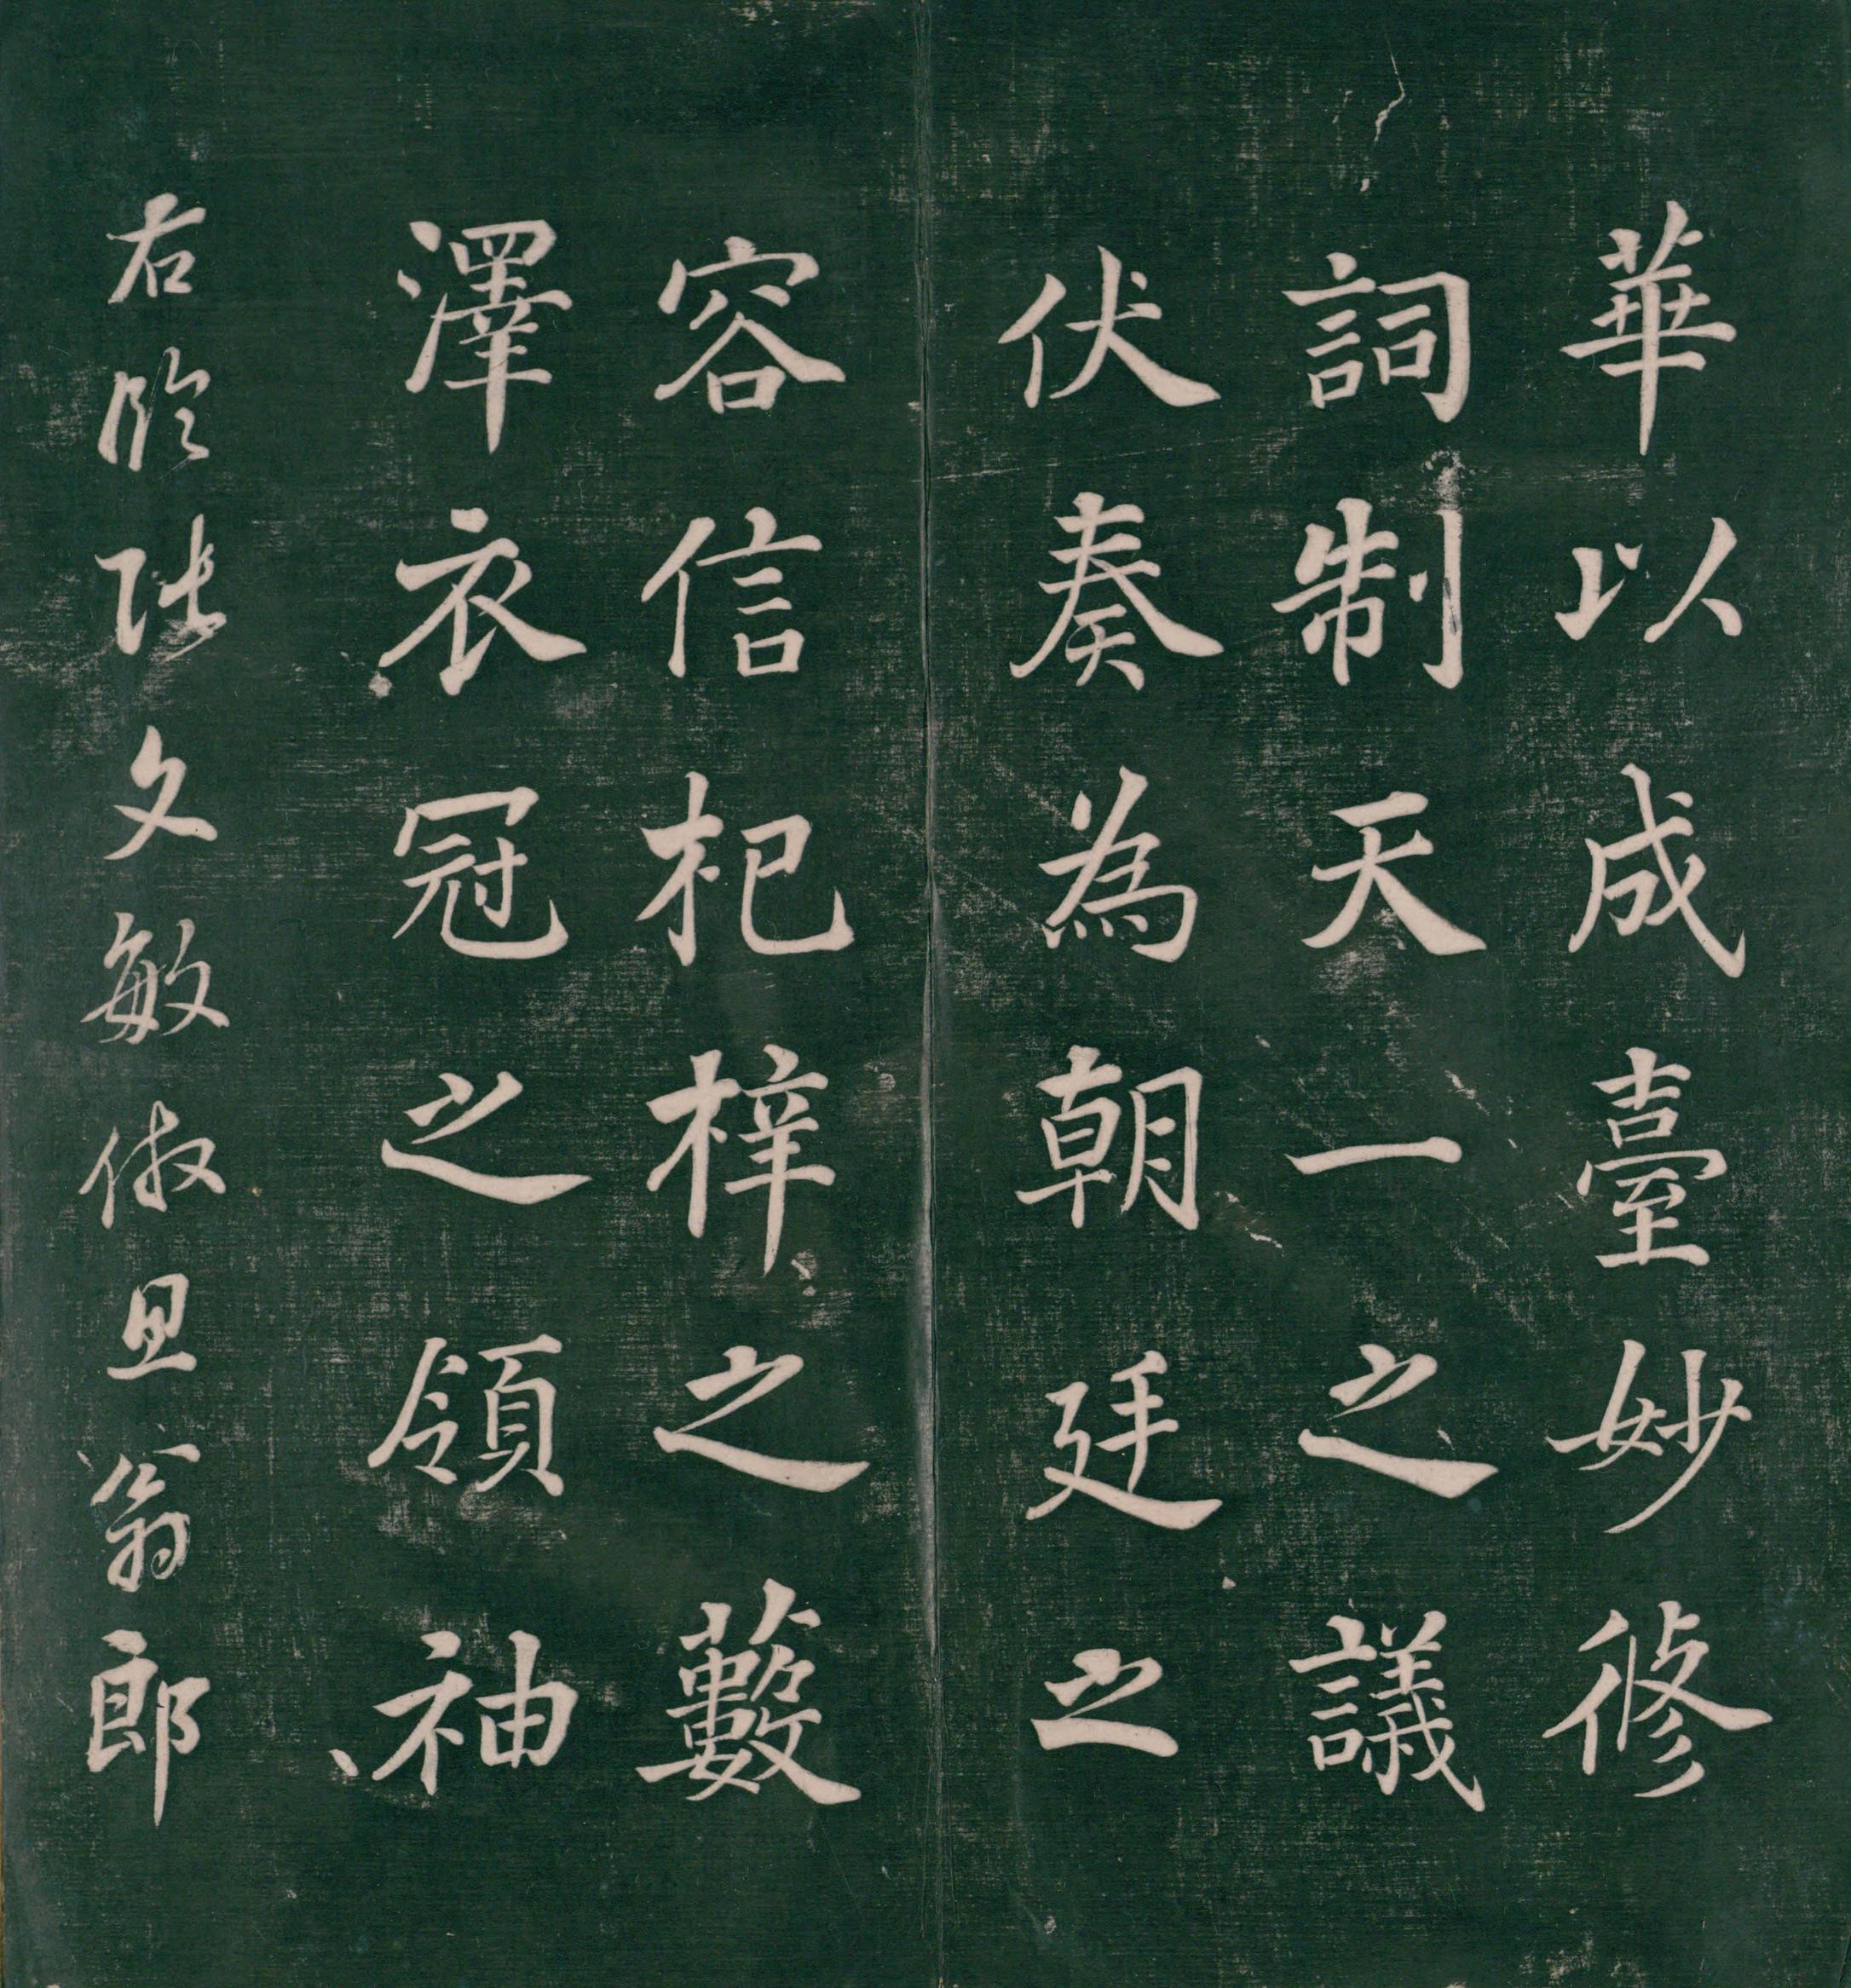 華以成臺妙修
詞制天一之議
伏奏為朝廷之
容信杞梓之藪
澤衣冠之領袖
右臨張文敏倣思翁郎